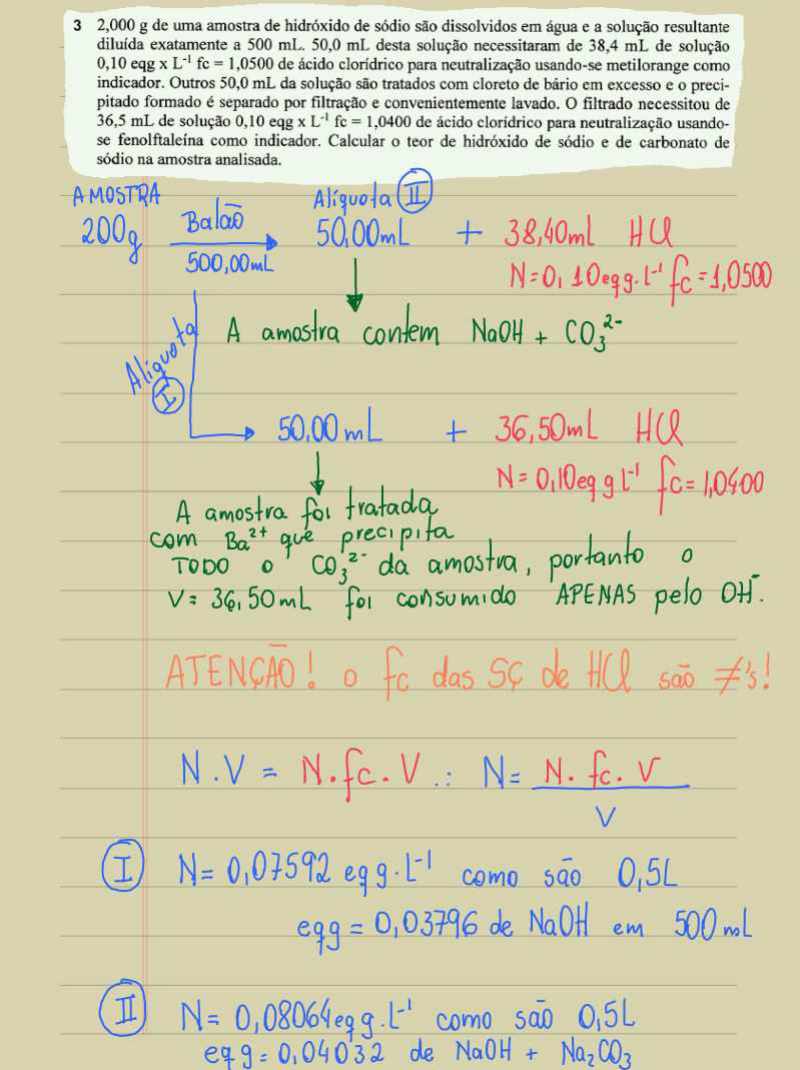 3 2,000 g de uma amostra de hidróxido de sódio são dissolvidos em água e a solução resultante
diluída exatamente a 500 mL. 50,0 mL desta solução necessitaram de 38,4 mL de solução
0,10 eqg x L⁻¹ fc = 1,0500 de ácido clorídrico para neutralização usando-se metilorange como
indicador. Outros 50,0 mL da solução são tratados com cloreto de bário em excesso e o preci-
pitado formado é separado por filtração e convenientemente lavado. O filtrado necessitou de
36,5 mL de solução 0,10 eqg x L⁻¹ fc = 1,0400 de ácido clorídrico para neutralização usando-
se fenolftaleína como indicador. Calcular o teor de hidróxido de sódio e de carbonato de
sódio na amostra analisada.
AMOSTRA Alíquota II
200g Balão 50,00mL + 38,40mL HCl
500,00mL N=0,10eqg.L⁻¹ fc=1,0500
A amostra contem NaOH + CO₃²⁻
Alíquota I
50,00mL + 36,50mL HCl
N=0,10eqg L⁻¹ fc=1,0400
A amostra foi tratada
com Ba²⁺ que precipita
TODO o CO₃²⁻ da amostra, portanto o
V=36,50mL foi consumido APENAS pelo OH⁻.
ATENÇÃO! o fc das SÇ de HCl são ≠'s!
N.V = N.fc.V ∴ N= N.fc.V
V
I N=0,07592 eqg.L⁻¹ como são 0,5L
eqg=0,03796 de NaOH em 500mL
II N=0,08064eqg.L⁻¹ como são 0,5L
eqg=0,04032 de NaOH + Na₂CO₃